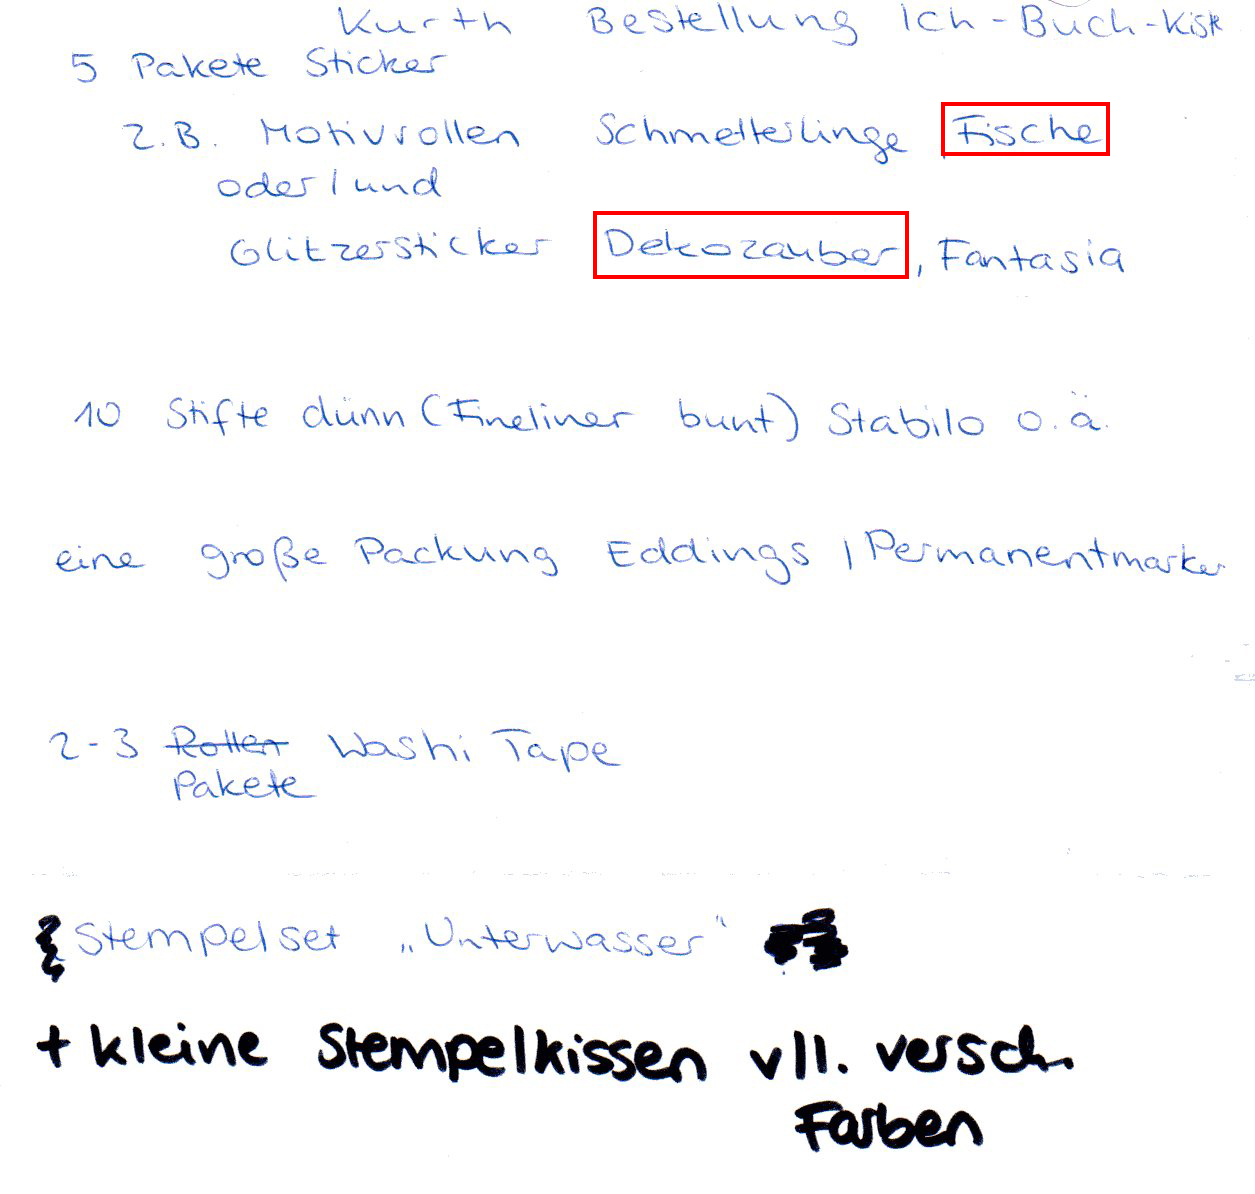 Kurth Bestellung Ich-Buch-Kiste
5 Pakete Sticker
z.B. Motivrollen Schmetterlinge, Fische
oder/und
Glitzersticker Dekozauber, Fantasia
10 Stifte dünn (Fineliner bunt) Stabilo o.ä.
eine große Packung Eddings / Permanentmarker
2-3 Rollen Washi Tape
Pakete
Stempelset „Unterwasser“
+ kleine Stempelkissen vll. versch.
Farben